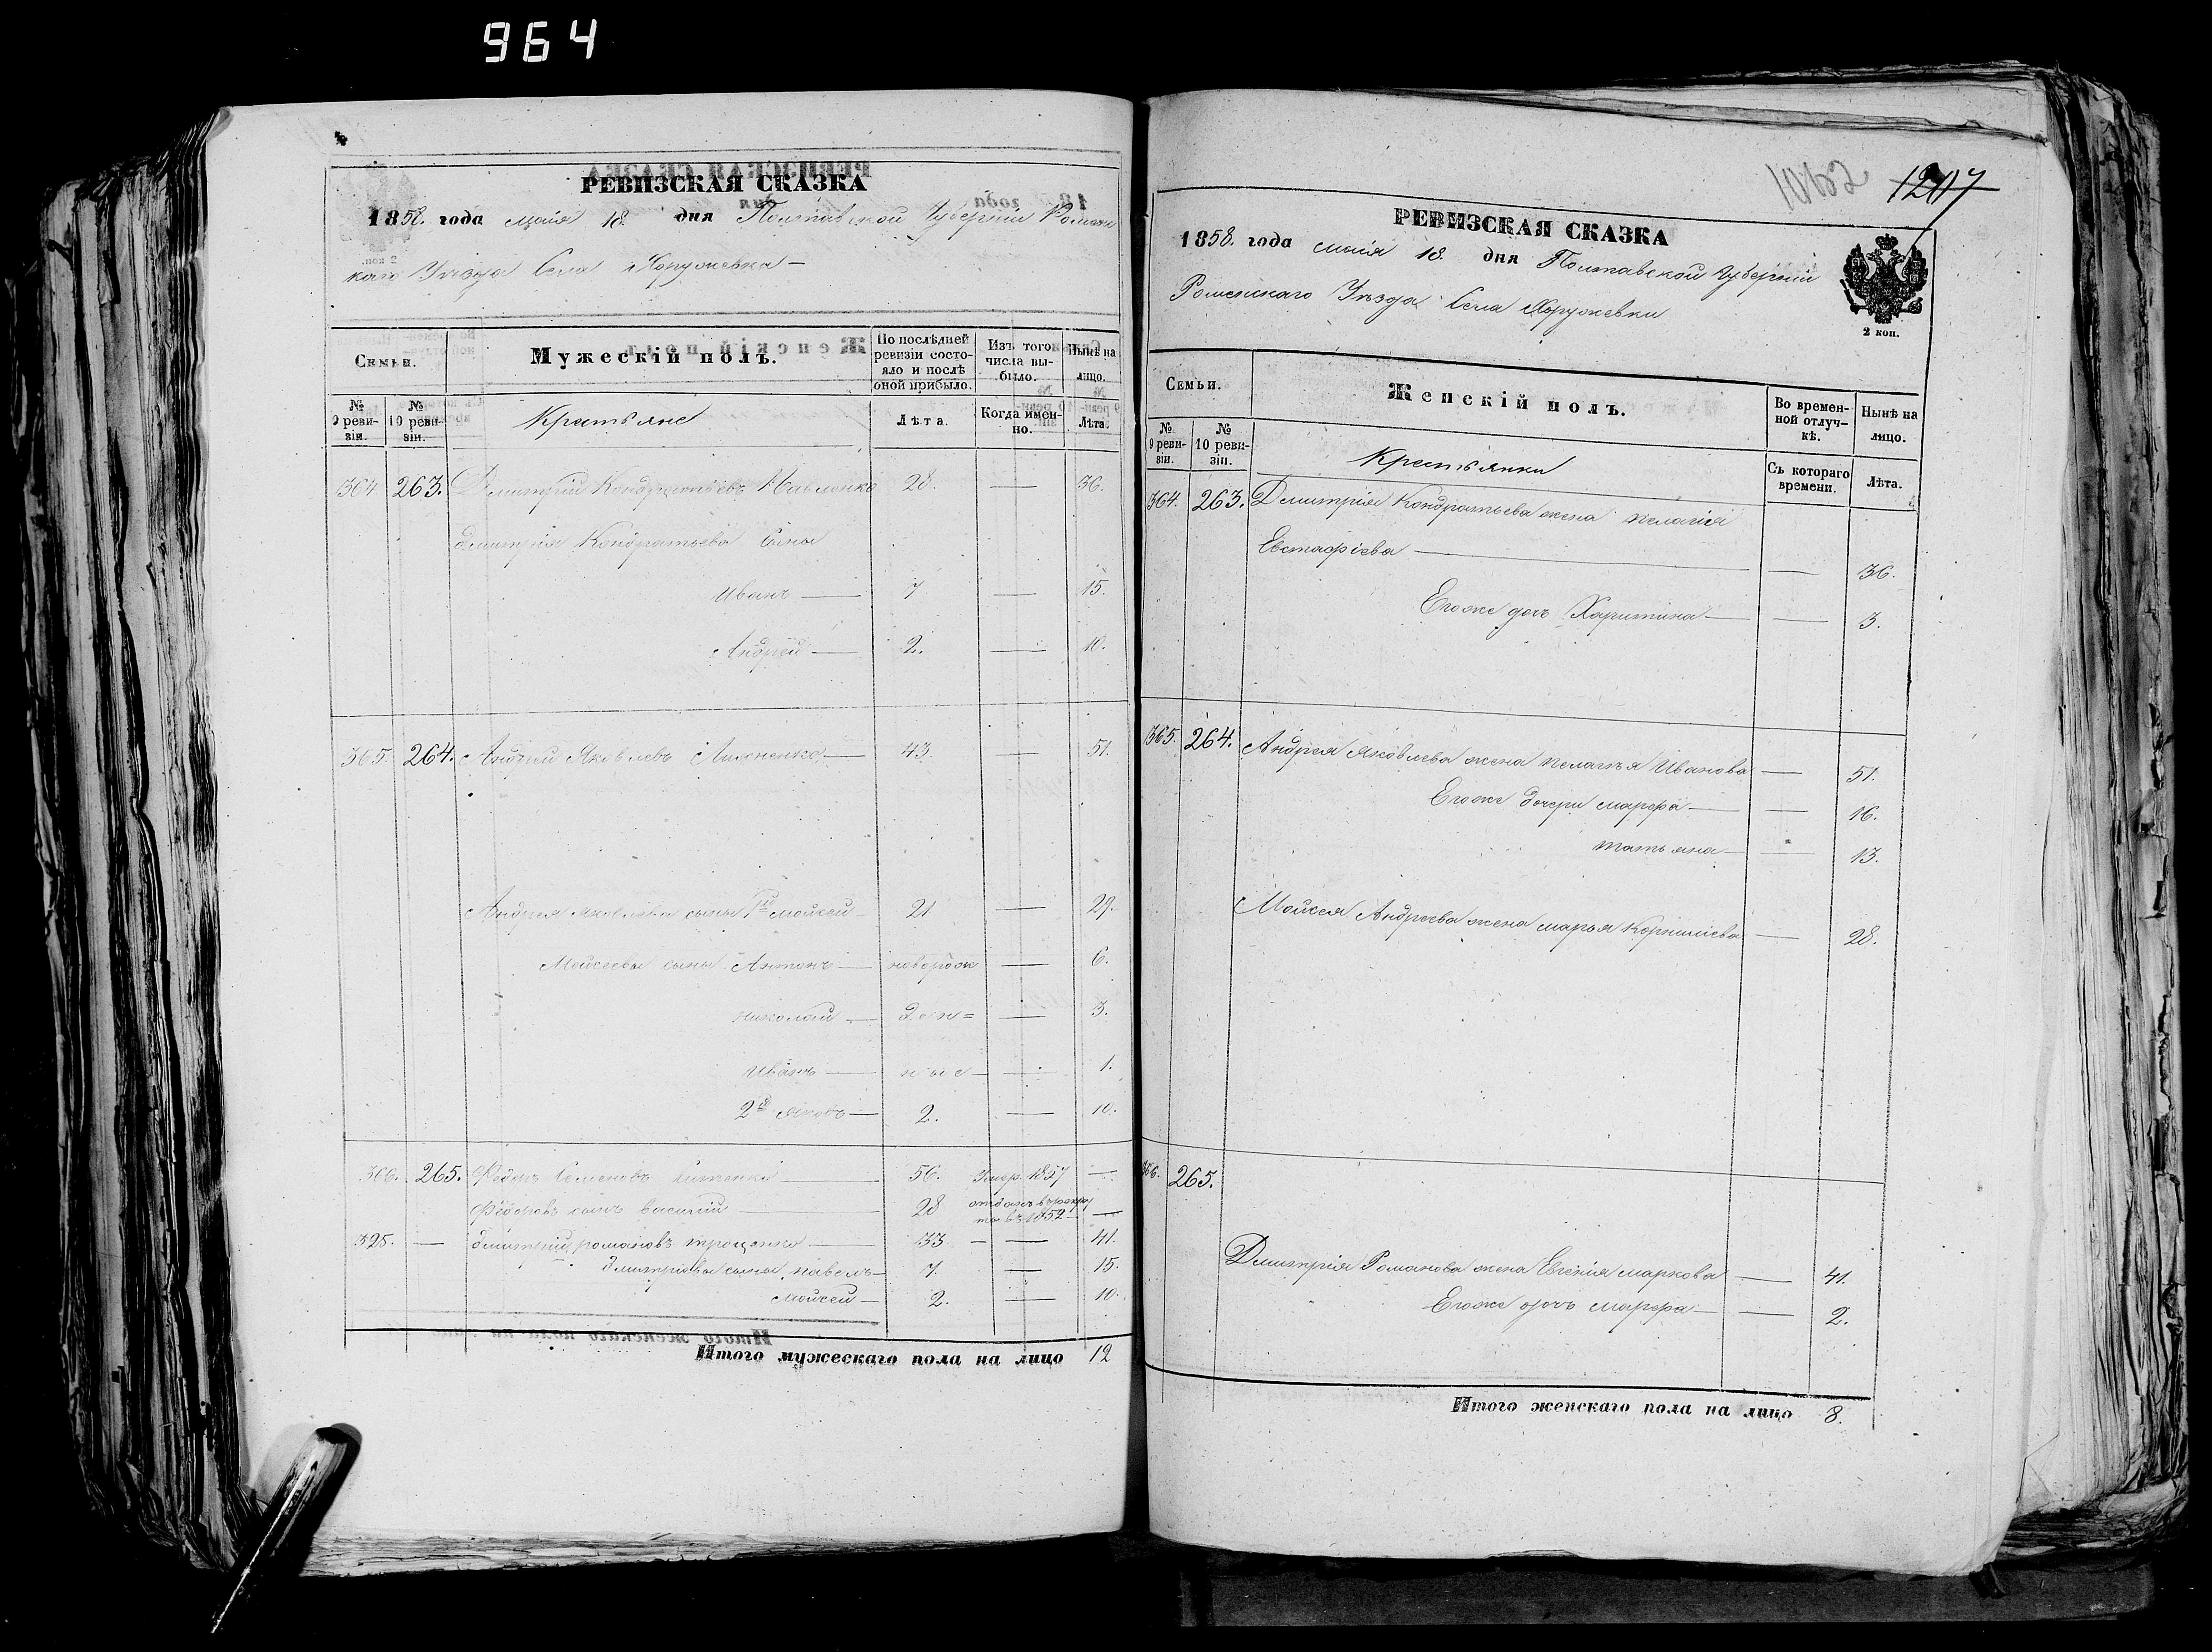 964
РЕВИЗСКАЯ СКАЗКА
1858. года маія 18. дня Полтавской Губерніи Роменс
каго Уѣзда Села Хоружевка —
Семьи.
Мужескій полъ.
По послѣдней ревизіи состояло и послѣ оной прибыло.
Изъ того числа выбыло.
Нынѣ на лицо.
№ 9 ревизіи.
№ 10 ревизіи.
Крестьяне
Лѣта.
Когда именно.
Лѣта.
364 263. Дмитрій Кондратьевъ Павленко 28. — 36.
Дмитрія Кондратьева Сыны
Иванъ — 7 — 15.
Андрей — 2. — 10.
365. 264. Андрей Яковлевъ — 43. — 51.
Андрея Яковлева сыны 1й Мойсей 21 — 29.
Мойсеевы сыны Антонъ — новорож — 6.
Николай — ден= — 3.
Иванъ — ные — — 1.
2й Яковъ — 2. — 10.
366. 265. Федоръ Семеновъ — 56. Умер. 1857 —
Федоровъ сынъ Василій — 28 отданъ въ рекру
ты въ 1852 — —
325. — Дмитрій Романовъ Троценко — 33 — — 41.
Дмитріевы сыны Павелъ — 7. — 15.
Мойсей — 2. — 10.
Итого мужескаго пола на лицо 12
1207
РЕВИЗСКАЯ СКАЗКА
1858. года маія 18. дня Полтавской Губерніи
Роменскаго Уѣзда Села Хоружевки
2 коп.
Семьи.
Женскій полъ.
Во временной отлучкѣ.
Нынѣ на лицо.
№ 9 ревизіи.
№ 10 ревизіи.
Крестьянки
Съ котораго времени.
Лѣта.
364. 263. Дмитрія Кондратьева жена Пелагія
Евстафіева — — 36.
Егоже дочь Харитина — — 3.
365. 264. Андрея Яковлева жена Пелагѣя Иванова — 51.
Егоже дочери Марфа — — 16.
Татьяна — — 13.
Мойсея Андреева жена Марья Корниліева — 28.
366. 265.
Дмитрія Романова жена Евгенія Маркова — 41.
Егоже дочь Марфа — — 2.
Итого женскаго пола на лицо 8.